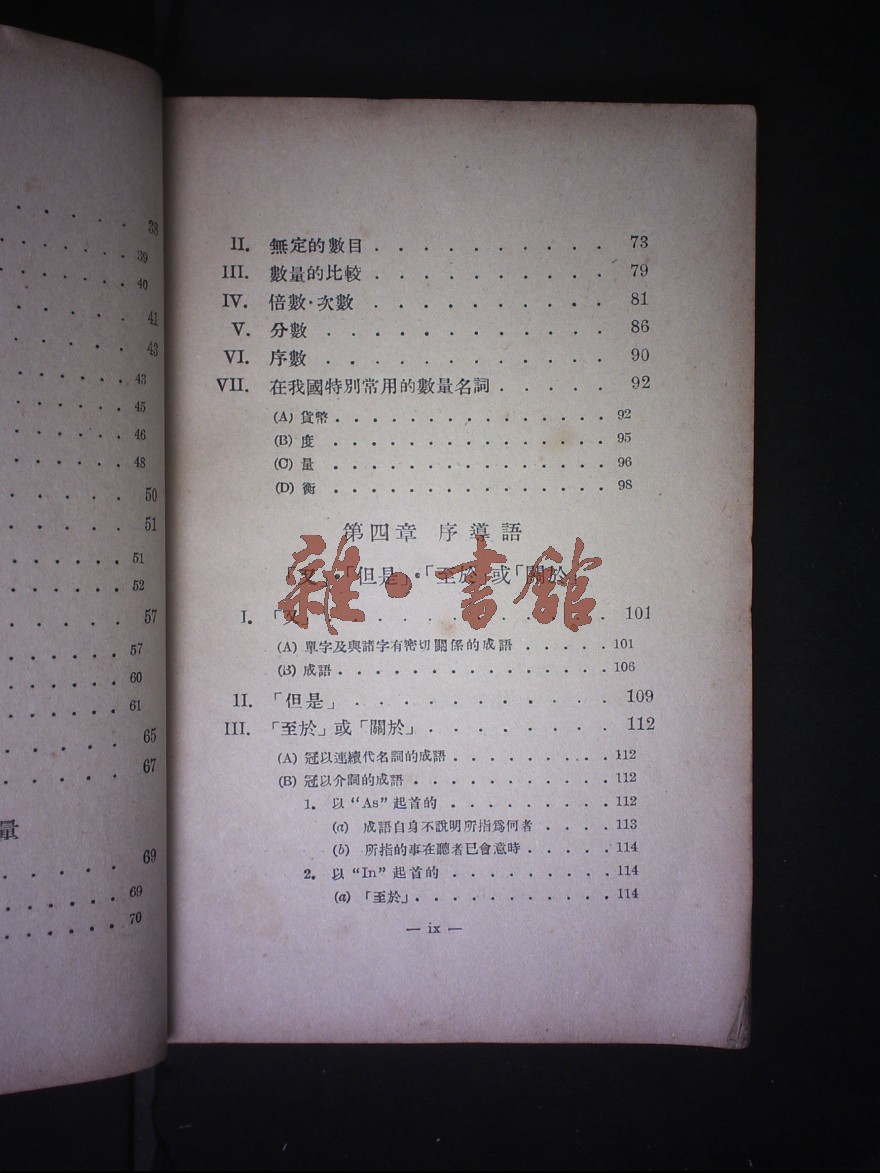 38
39
40
41
43
43
45
46
48
50
51
51
52
57
57
60
61
65
67
量
69
69
70
II. 無定的數目 . . . . . . . . . . 73
III. 數量的比較 . . . . . . . . . . 79
IV. 倍數·次數 . . . . . . . . . . 81
V. 分數 . . . . . . . . . . . . 86
VI. 序數 . . . . . . . . . . . . 90
VII. 在我國特別常用的數量名詞 . . . . . 92
(A) 貨幣 . . . . . . . . . . . . . . 92
(B) 度 . . . . . . . . . . . . . . 95
(C) 量 . . . . . . . . . . . . . . 96
(D) 衡 . . . . . . . . . . . . . . 98
第四章 序導語
「又」·「但是」·「至於」或「關於」
雜·書館
I. 「又」 . . . . . . . . . . . . 101
(A) 單字及與諸字有密切關係的成語 . . . . . 101
(B) 成語 . . . . . . . . . . . . . . 106
II. 「但是」 . . . . . . . . . . . 109
III. 「至於」或「關於」 . . . . . . . . 112
(A) 冠以連續代名詞的成語 . . . . . . . . 112
(B) 冠以介詞的成語 . . . . . . . . . . 112
1. 以“As”起首的 . . . . . . . . 112
(a) 成語自身不說明所指爲何者 . . . . 113
(b) 所指的事在聽者已會意時 . . . . . 114
2. 以“In”起首的 . . . . . . . . 114
(a) 「至於」 . . . . . . . . . . 114
— ix —